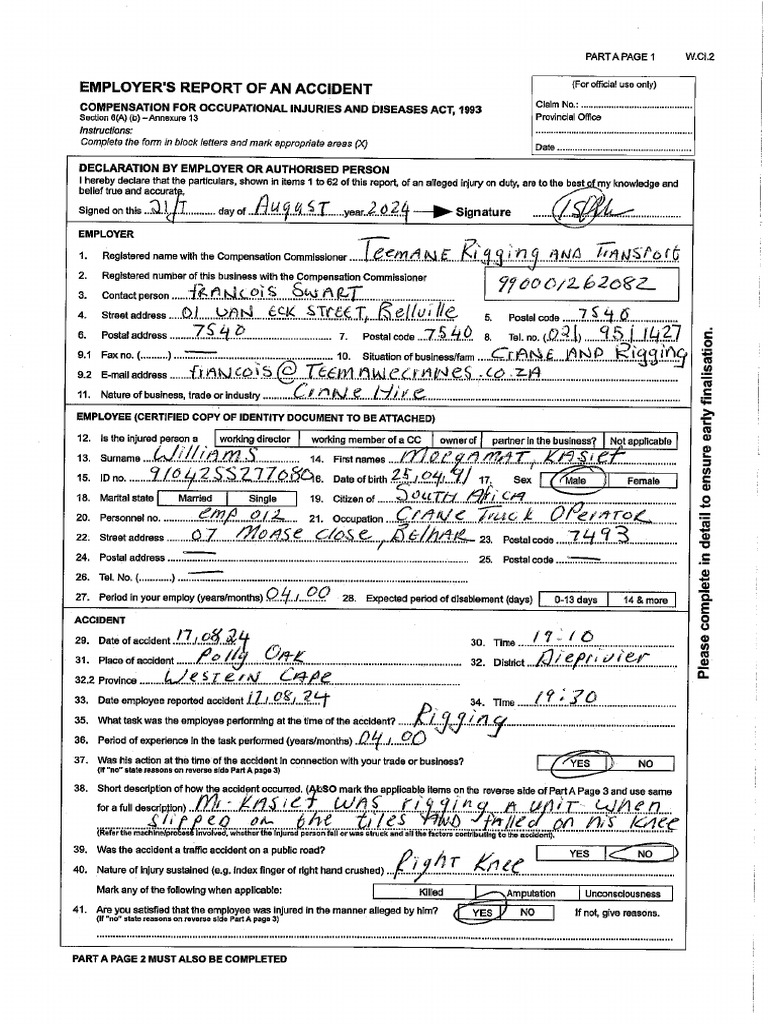 PART A PAGE 1 W.Cl.2
EMPLOYER'S REPORT OF AN ACCIDENT
(For official use only)
COMPENSATION FOR OCCUPATIONAL INJURIES AND DISEASES ACT, 1993
Claim No.: ..........
Section 6(A) (b) – Annexure 13
Provincial Office
Instructions:
Complete the form in block letters and mark appropriate areas (X)
Date ..........
DECLARATION BY EMPLOYER OR AUTHORISED PERSON
I hereby declare that the particulars, shown in items 1 to 62 of this report, of an alleged injury on duty, are to the best of my knowledge and
belief true and accurate.
Signed on this 21/T day of August year 2024 Signature
EMPLOYER
1. Registered name with the Compensation Commissioner Teemane Rigging and Transport
2. Registered number of this business with the Compensation Commissioner 990001262082
3. Contact person Francois Swart
4. Street address 01 Van Eck Street, Bellville 5. Postal code 7540
6. Postal address 7540 7. Postal code 7540 8. Tel. no. (021) 951 1427
9.1 Fax no. (..........) — 10. Situation of business/farm Crane and Rigging
9.2 E-mail address francois@Teemanecranes.co.za
11. Nature of business, trade or industry Crane Hire
EMPLOYEE (CERTIFIED COPY OF IDENTITY DOCUMENT TO BE ATTACHED)
12. Is the injured person a working director working member of a CC owner of partner in the business? Not applicable
13. Surname Williams 14. First names Morgamat, Kasief
15. ID no. 9104255277080 16. Date of birth 25,04,91 17. Sex Male Female
18. Marital state Married Single 19. Citizen of South Africa
20. Personnel no. emp 012 21. Occupation Crane Truck Operator
22. Street address 07 Moase Close, Belhar 23. Postal code 7493
24. Postal address — 25. Postal code —
26. Tel. No. (..........) —
27. Period in your employ (years/months) 04,00 28. Expected period of disablement (days) 0-13 days 14 & more
ACCIDENT
29. Date of accident 17,08,24 30. Time 19:10
31. Place of accident Polly Oak 32. District Dieprivier
32.2 Province Western Cape
33. Date employee reported accident 17,08,24 34. Time 19:30
35. What task was the employee performing at the time of the accident? Rigging
36. Period of experience in the task performed (years/months) 04,00
37. Was his action at the time of the accident in connection with your trade or business? YES NO
(If "no" state reasons on reverse side Part A page 3)
38. Short description of how the accident occurred. (ALSO mark the applicable items on the reverse side of Part A Page 3 and use same
for a full description) Mr Kasief was rigging a unit when
slipped on the tiles and falled on his knee
(Refer the machine/process involved, whether the injured person fell or was struck and all the factors contributing to the accident).
39. Was the accident a traffic accident on a public road? YES NO
40. Nature of injury sustained (e.g. Index finger of right hand crushed) Right Knee
Mark any of the following when applicable: Killed Amputation Unconsciousness
41. Are you satisfied that the employee was injured in the manner alleged by him? YES NO If not, give reasons.
(If "no" state reasons on reverse side Part A page 3)
PART A PAGE 2 MUST ALSO BE COMPLETED
Please complete in detail to ensure early finalisation.